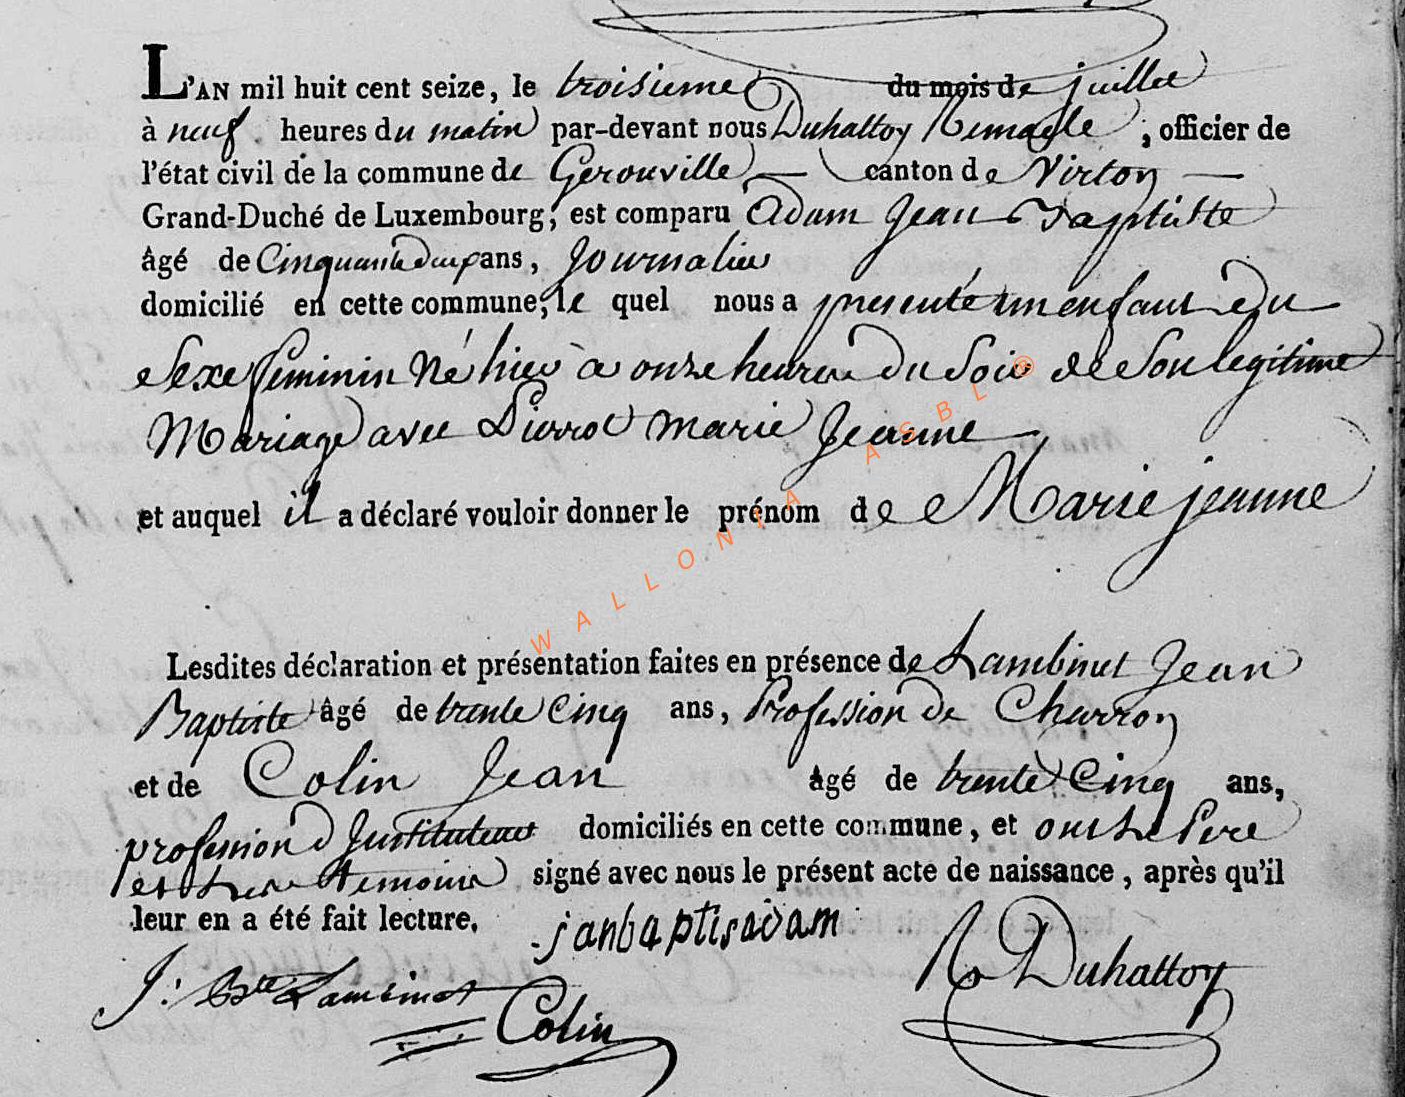 L'AN mil huit cent seize, le troisieme du mois de juillet
à neuf heures du matin par-devant nous Duhattoy Remacle, officier de
l'état civil de la commune de Gerouville — canton de Virton —
Grand-Duché de Luxembourg, est comparu Adam Jean Baptiste
âgé de Cinquante deux ans, journalier
domicilié en cette commune, le quel nous a presenté un enfant du
Sexe feminin Né hier a onze heures du Soir de Son legitime
Mariage avec Pierrot marie Jeanne
et auquel il a déclaré vouloir donner le prénom de Marie jeanne
Lesdites déclaration et présentation faites en présence de Lambinet Jean
Baptiste âgé de trente Cinq ans, Profession de Charron
et de Colin Jean âgé de trente Cinq ans,
profession d'Instituteur domiciliés en cette commune, et ont Le Pere
et Les temoins signé avec nous le présent acte de naissance, après qu'il
leur en a été fait lecture. janbaptisadam
J: Bte Lambinet Colin R Duhattoy
WALLONIA ASBL ®